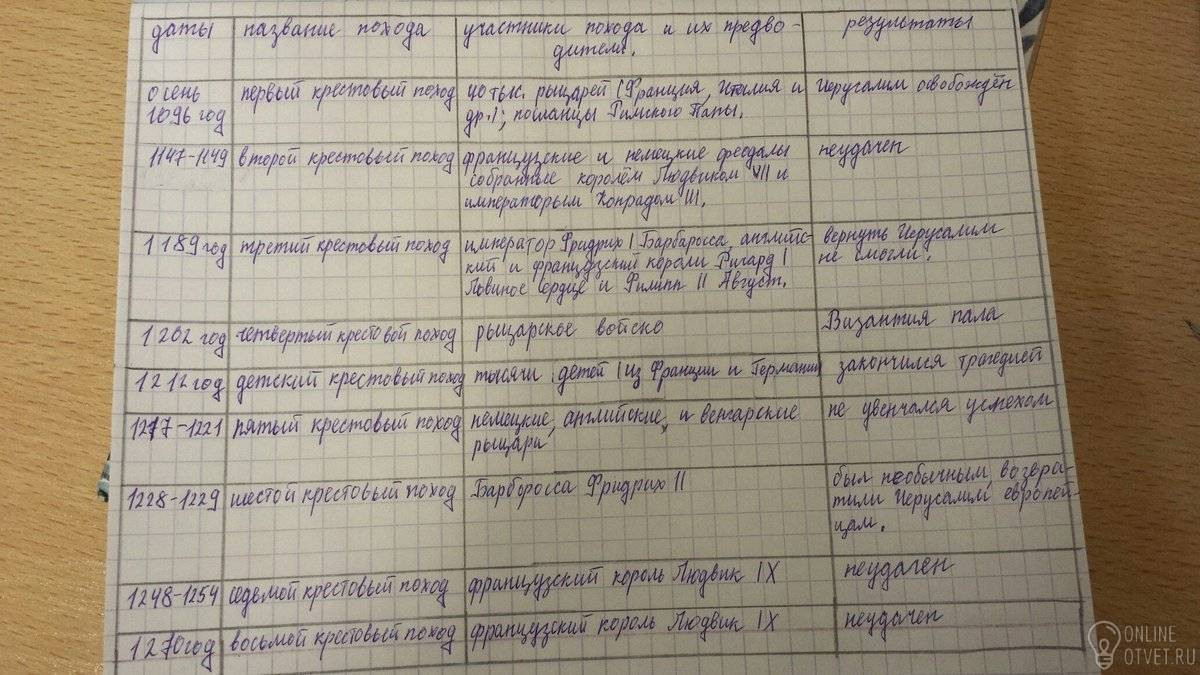 даты название похода участники похода и их предво- результаты
дители.
осень первый крестовый поход 40 тыс. рыцарей (Франция, Италия и Иерусалим освобождён
1096 год др.); посланцы Римского Папы.
1147-1149 второй крестовый поход французские и немецкие феодалы неудачен
собранные королём Людвиком VII и
императорым Конрадом III.
1189 год третий крестовый поход император Фридрих I Барбаросса, английс- вернуть Иерусалим
кий и французский короли Ричард I не смогли.
Львиное сердце и Филипп II Август.
1202 год четвертый крестовой поход рыцарское войско Византия пала
1212 год детский крестовый поход тысячи детей (из Франции и Германии) закончился трагедией
1217-1221 пятый крестовый поход немецкие, английские, и венгарские не увенчался успехом
рыцари
1228-1229 шестой крестовый поход Барборосса Фридрих II был необычным, возвра-
тили Иерусалим европей-
цам.
1248-1254 седьмой крестовый поход французский король Людвик IX неудачен
1270 год восьмой крестовый поход французский король Людвик IX неудачен
ONLINE
OTVET.RU